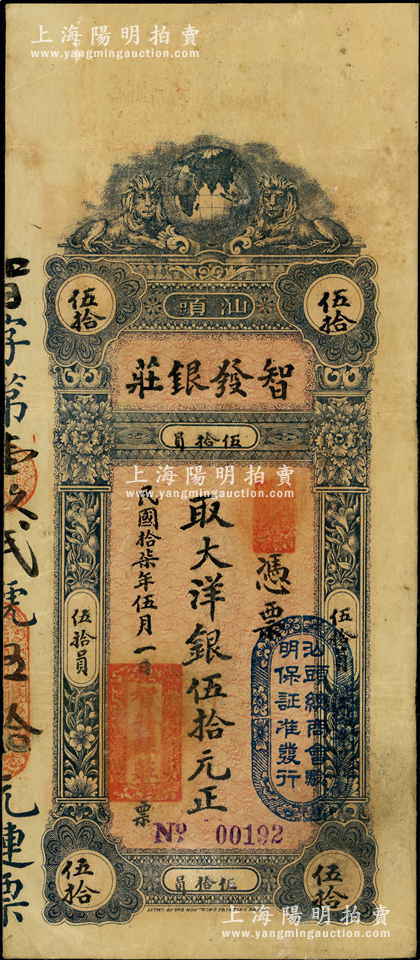 上海陽明拍賣
www.yangmingauction.com
伍拾
伍拾
汕頭
智發銀莊
伍拾員
憑票
取大洋銀伍拾元正
民國拾柒年伍月一日
票
上海陽明拍賣
www.yangmingauction.com
伍拾員
伍拾員
汕頭總商會
明保証准發行
字第壹玖弍號伍拾元連票
No 00192
伍拾
伍拾
伍拾員
上海陽明拍賣
www.yangmingauction.com